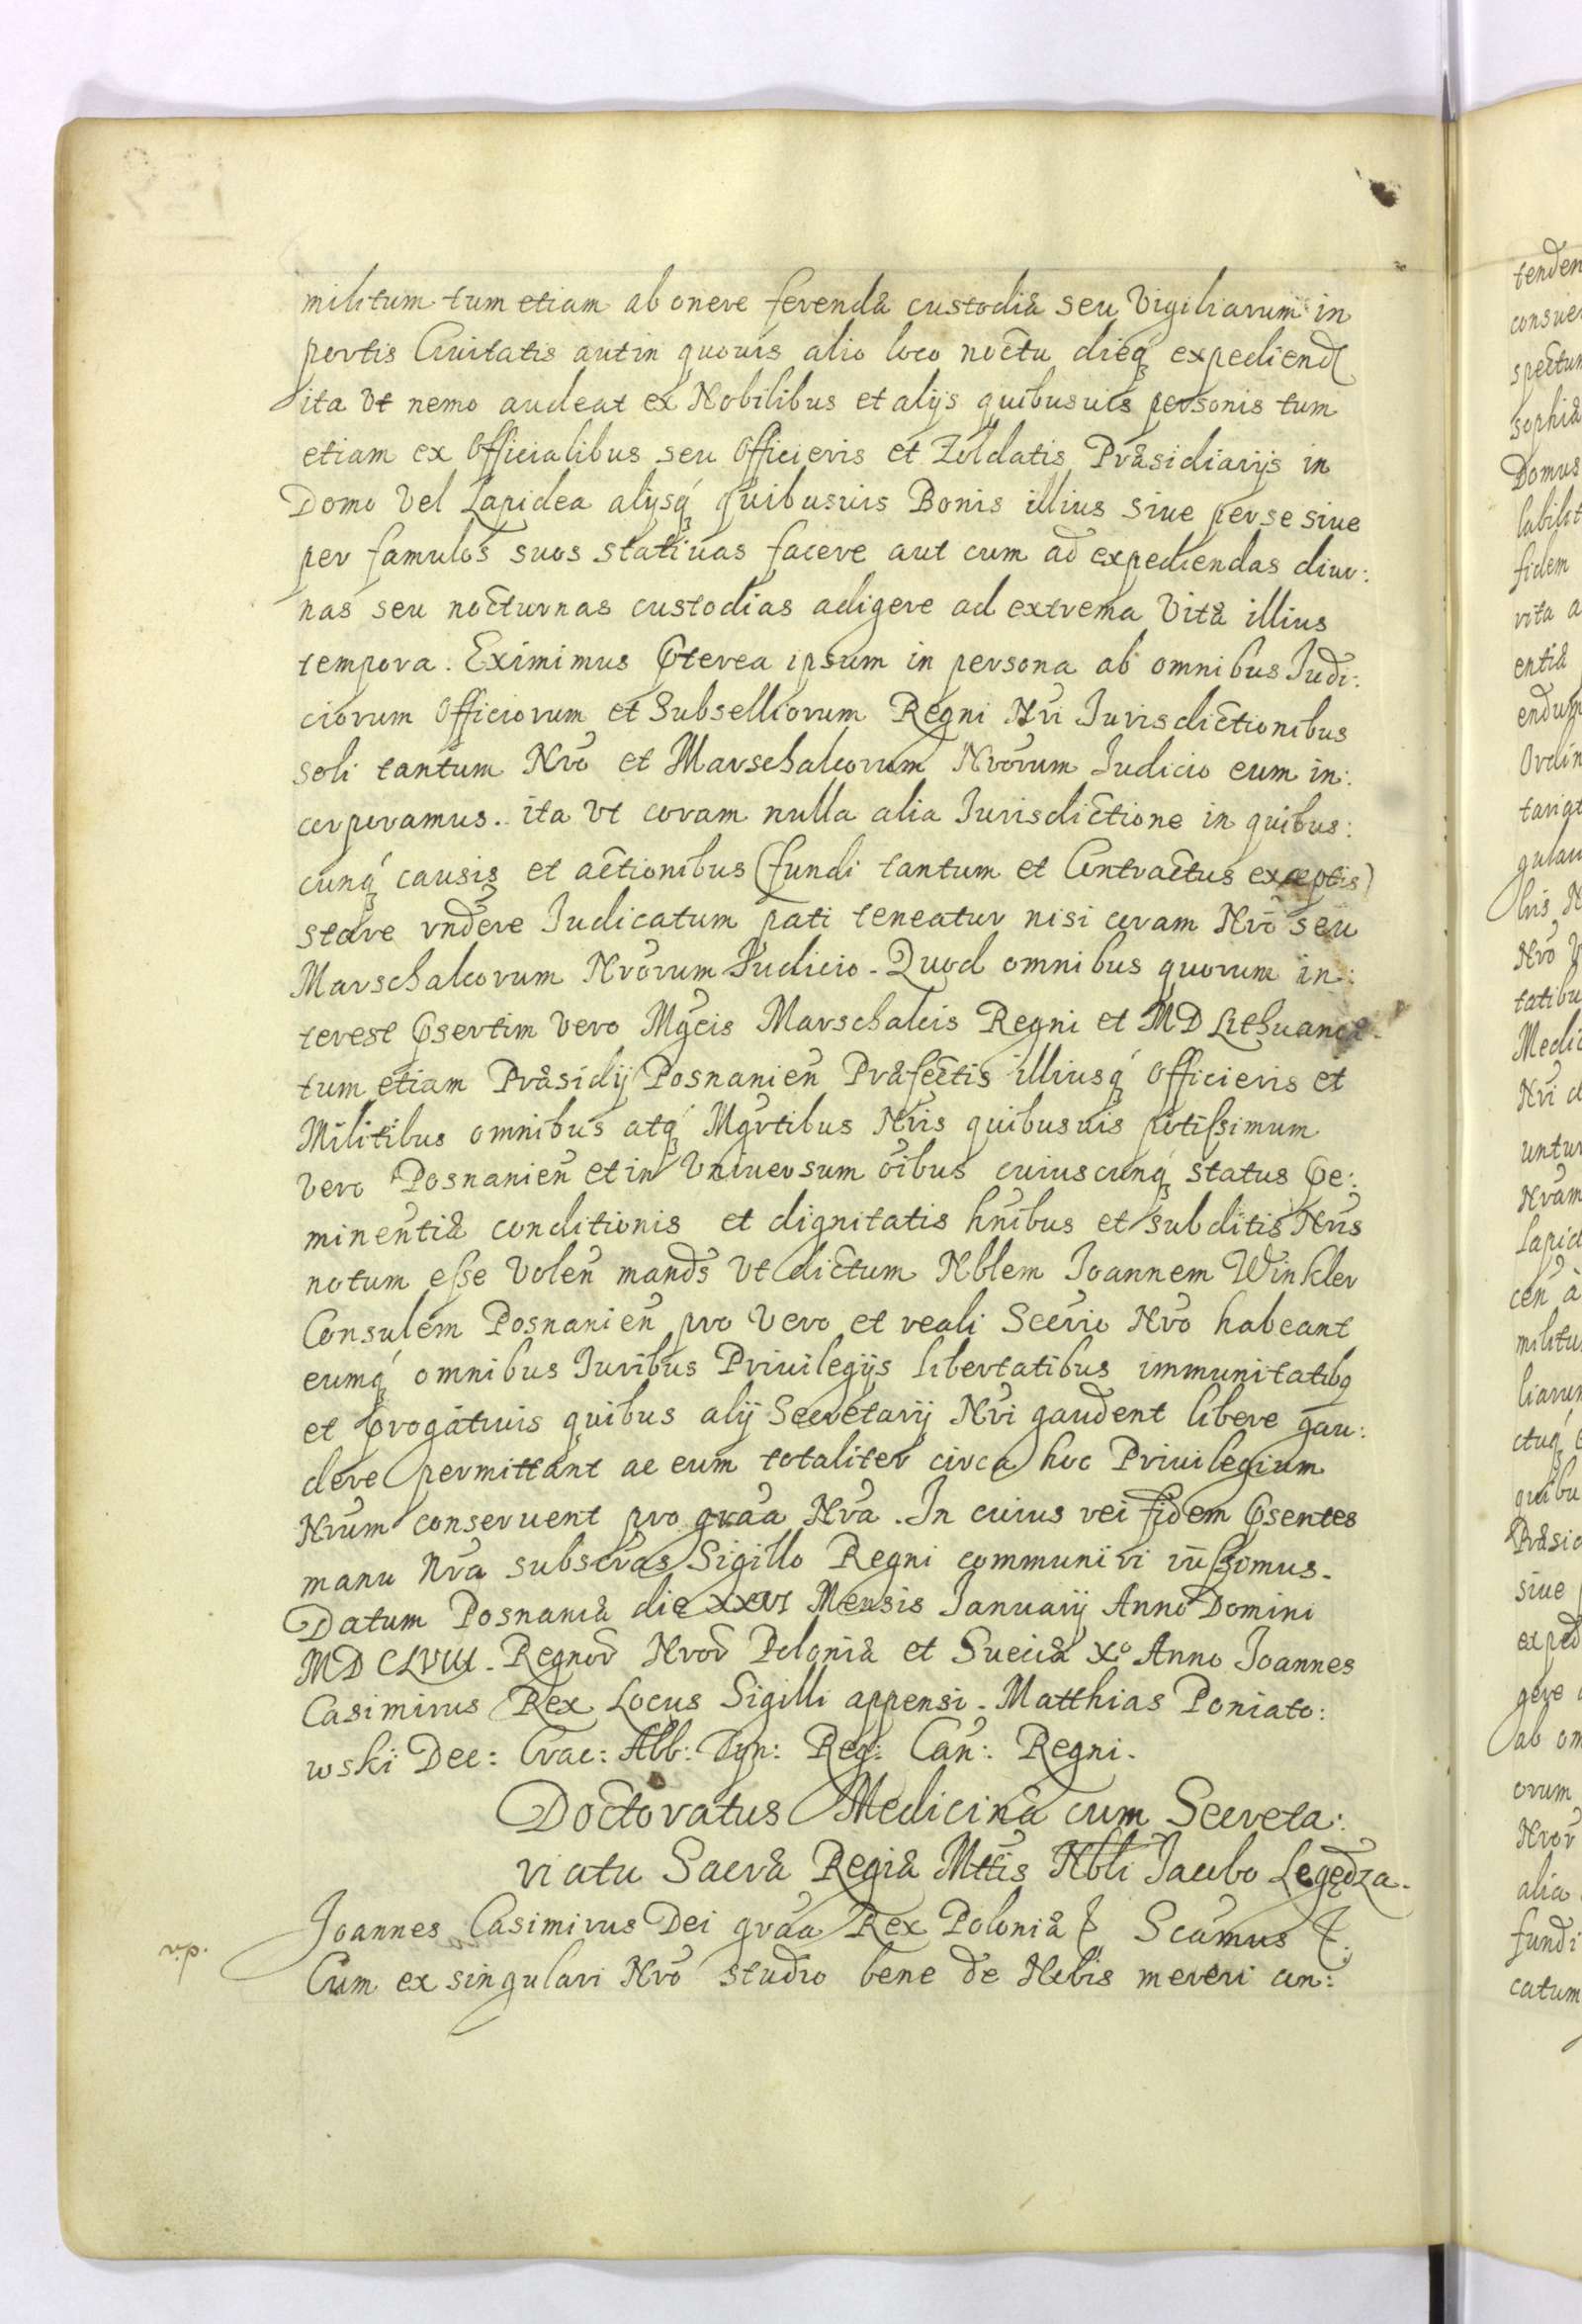 militum tum etiam ab onere ferendæ custodiæ seu Vigiliarum in
portis Ciuitatis aut in quouis alio loco noctu dieq́ꝫ expediend
ita Vt nemo audeat ex Nobilibus et alijs quibusuis personis tum
etiam ex Officialibus seu Officieris et Zoldatis Præsidiarijs in
Domo Vel Lapidea alijsq́ꝫ quibusuis Bonis illius siue per se siue
per famulos suos statiuas facere aut cum ad expediendas diur:
nas seu nocturnas custodias adigere ad extrema Vitæ illius
tempora. Eximimus Pterea ipsum in persona ab omnibus Judi:
ciorum Officiorum et Subselliorum Regni Nri Jurisdictionibus
soli tantum Nro et Marschalcorum Nrorum Judicio eum in:
corporamus. ita Vt coram nulla alia Jurisdictione in quibus:
cunq́ꝫ causis et actionibus (fundi tantum et Contractus exceptis)
stare rndere Judicatum pati teneatur nisi coram Nro seu
Marschalcorum Nrorum Judicio. Quod omnibus quorum in:
terest Psertim vero Mgcis Marschalcis Regni et MD Lithuaniæ
tum etiam Præsidij Posnanien Præfectis illiusq́ꝫ Officieris et
Militibus omnibus atq́ꝫ Mgrtibus Nris quibusuis potissimum
Vero Posnanien et in Vniuersum oibus cuiuscunq́ꝫ status Pe:
minentiæ conditionis et dignitatis hnibus et subditis Nris
notum esse Volen mands Vt dictum Nblem Joannem Winkler
Consulem Posnanien pro Vero et reali Secrio Nro habeant
eumq́ꝫ omnibus Juribus Priuilegijs libertatibus immunitatibq
et Progatiuis quibus alij Secretarij Nri gaudent libere gau:
dere permittant ac eum totaliter circa hoc Priuilegium
Nrum conseruent pro graa Nra. In cuius rei fidem Psentes
manu Nra subscras Sigillo Regni communiri iussimus.
Datum Posnaniæ die XXVI Mensis Januarij Anno Domini
MDCLVIII. Regnor Nror Poloniæ et Sueciæ X.º Anno Joannes
Casimirus Rex Locus Sigilli appensi. Matthias Poniato:
wski Dec: Crac: Abb: Tyn: Reg: Can: Regni.
Doctoratus Medicinæ cum Secreta:
riatu Sacræ Regiæ Mttis Nbli Jacobo Legędza.
Joannes Casimirus Dei graa Rex Poloniæ & Scamus &.
r.p.
Cum ex singulari Nro studio bene de Nobis mereri con: